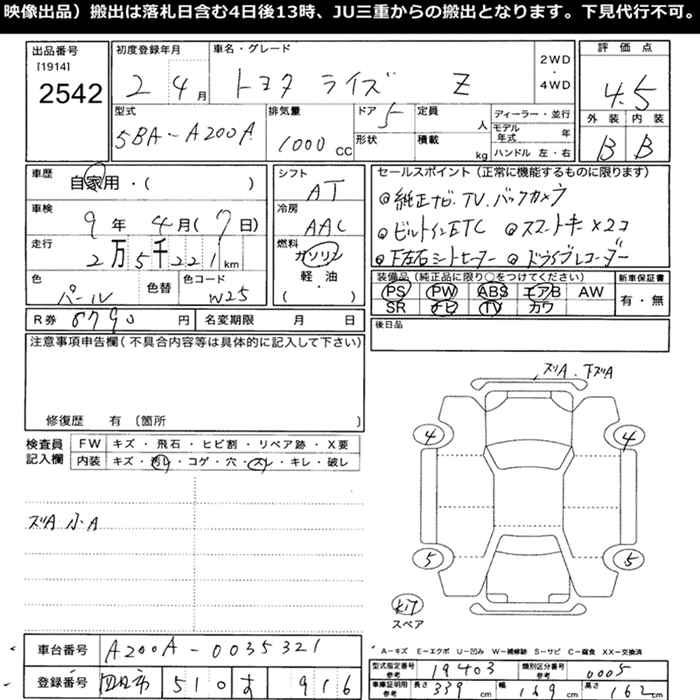 映像出品）搬出は落札日含む4日後13時、JU三重からの搬出となります。下見代行不可。
出品番号 [1914] 2542
初度登録年月 2 4月
車名・グレード トヨタ ライズ Z
2WD・4WD
評価点 4.5
外装 B 内装 B
型式 5BA-A200A
排気量 1000cc
ドア 5 形状
定員 人
積載 kg
ディーラー・並行
モデル年式 年
ハンドル 左・右
車歴 自家用・( )
シフト AT
車検 9年4月(7日)
冷房 AAC
走行 2万5千221km
燃料 ガソリン 軽・油 ( )
色 パール 色替
色コード W25
セールスポイント（正常に機能するものに限ります）
◎純正ナビ.TV.バックカメラ
◎ビルトインETC ◎スマートキー×2コ
◎下左右シートヒーター ◎ドライブレコーダー
装備品（純正品に限り○をつけてください）
PS PW ABS エアB AW
SR ナビ TV カワ
新車保証書 有・無
R券 8790円
名変期限 月 日
後日品
注意事項申告欄(不具合内容等は具体的に記入して下さい)
修復歴 有 〔箇所 〕
検査員記入欄
FW キズ・飛石・ヒビ割・リペア跡・X要
内装 キズ・汚れ・コゲ・穴・スレ・キレ・破し
ズリA 小A
ズリA.下ズリA
4 4
5 5
スペア
A－キズ E－エクボ U－凹み W－補修跡 S－サビ C－腐食 XX－交換済
車台番号 A200A-0035321
登録番号 四日市 510 す 916
型式指定番号 参考 19403
類別区分番号 参考 0005
車庫証明用 参考 長さ 339cm 幅 169cm 高さ 162cm